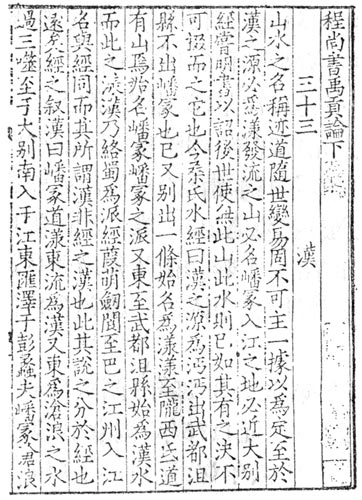 程尚書禹貢論下
三十三 漢
山水之名稱迹道隨世變易固不可主一據以為定至於
漢之源必為漾發流之山必名嶓冢入江之地必近大別
經嘗明書以詔後世使無此山此水則已如其有之決不
可掇而之它也今桑氏水經曰漢之源為沔沔出武都沮
縣不出嶓冢也已又別出一條始名為漾漾至隴西氐道
有山焉治名嶓冢嶓冢之派又東至武都沮縣始為漢水
而此之漢乃絡蜀為派經葭萌劒閣至巴之江州入江
名與經同而其所謂漢非經之漢也此其說之分於經也
遠矣經之叙漢曰嶓冢道漾東流為漢又東為滄浪之水
過三澨至于大別南入于江東匯澤于彭蠡夫嶓冢浪